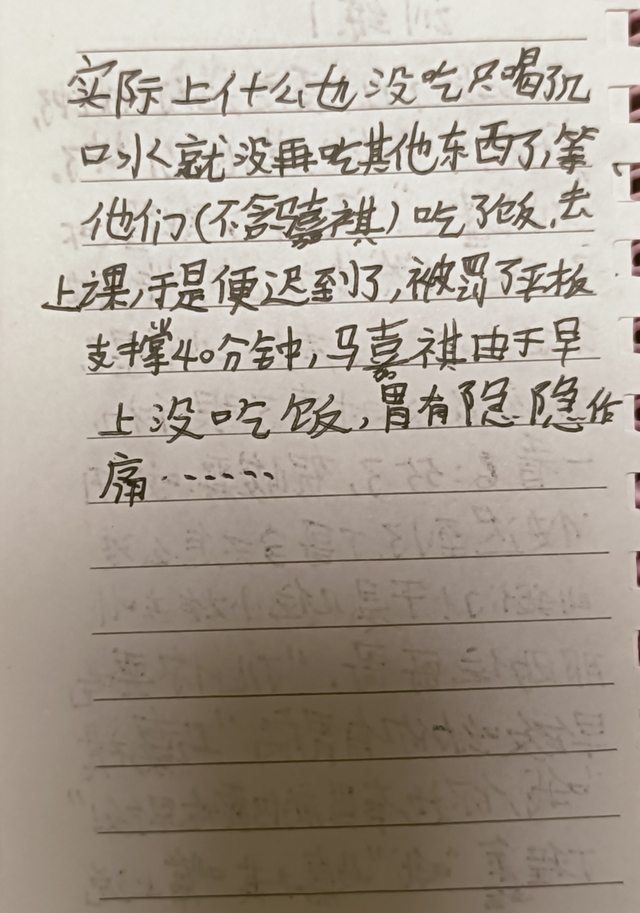 实际上什么也没吃只喝了几
口水就没再吃其他东西了,等
他们(不含马嘉祺)吃了饭,去
上课,于是便迟到了,被罚了平板
支撑40分钟,马嘉祺由于早
上没吃饭,胃有隐隐作
痛……